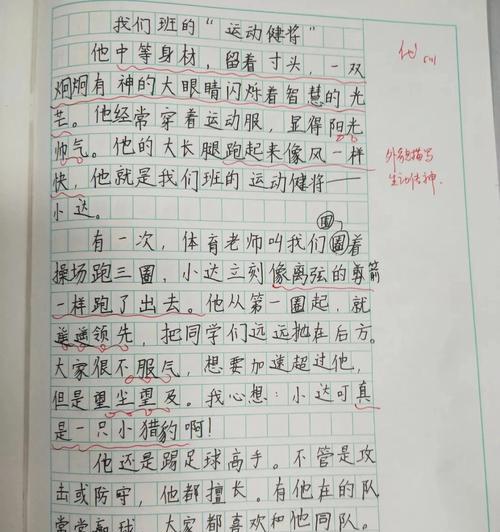 我们班的“运动健将”
他中等身材，留着寸头，一双
炯炯有神的大眼睛闪烁着智慧的光
芒。他经常穿着运动服，显得阳光
帅气。他的大长腿跑起来像风一样
快，他就是我们班的运动健将——
小达。
他
外貌描写
生动传神.
有一次，体育老师叫我们着
操场跑三圈，小达立刻像离弦的箭
一样跑了出去。他从第一圈起，就
遥遥领先，把同学们远远抛在后方。
大家很不服气，想要加速超过他，
但是望尘望及。我心想：小达可真
是一只小猎豹啊！
他还是踢足球高手。不管是攻
击或防守，他都擅长。有他在的队
常常赢球，大家都喜欢和他同队。